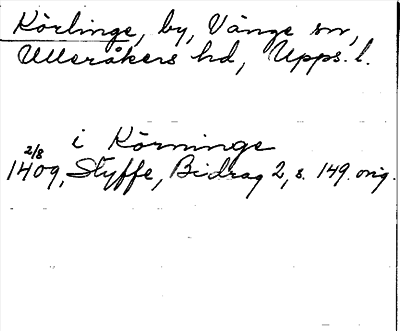 Körlinge, by, Vänge sn,
Ulleråkers hd, Upps. l.
i Körninge
2/8
1409, Styffe, Bidrag 2, s. 149. orig.